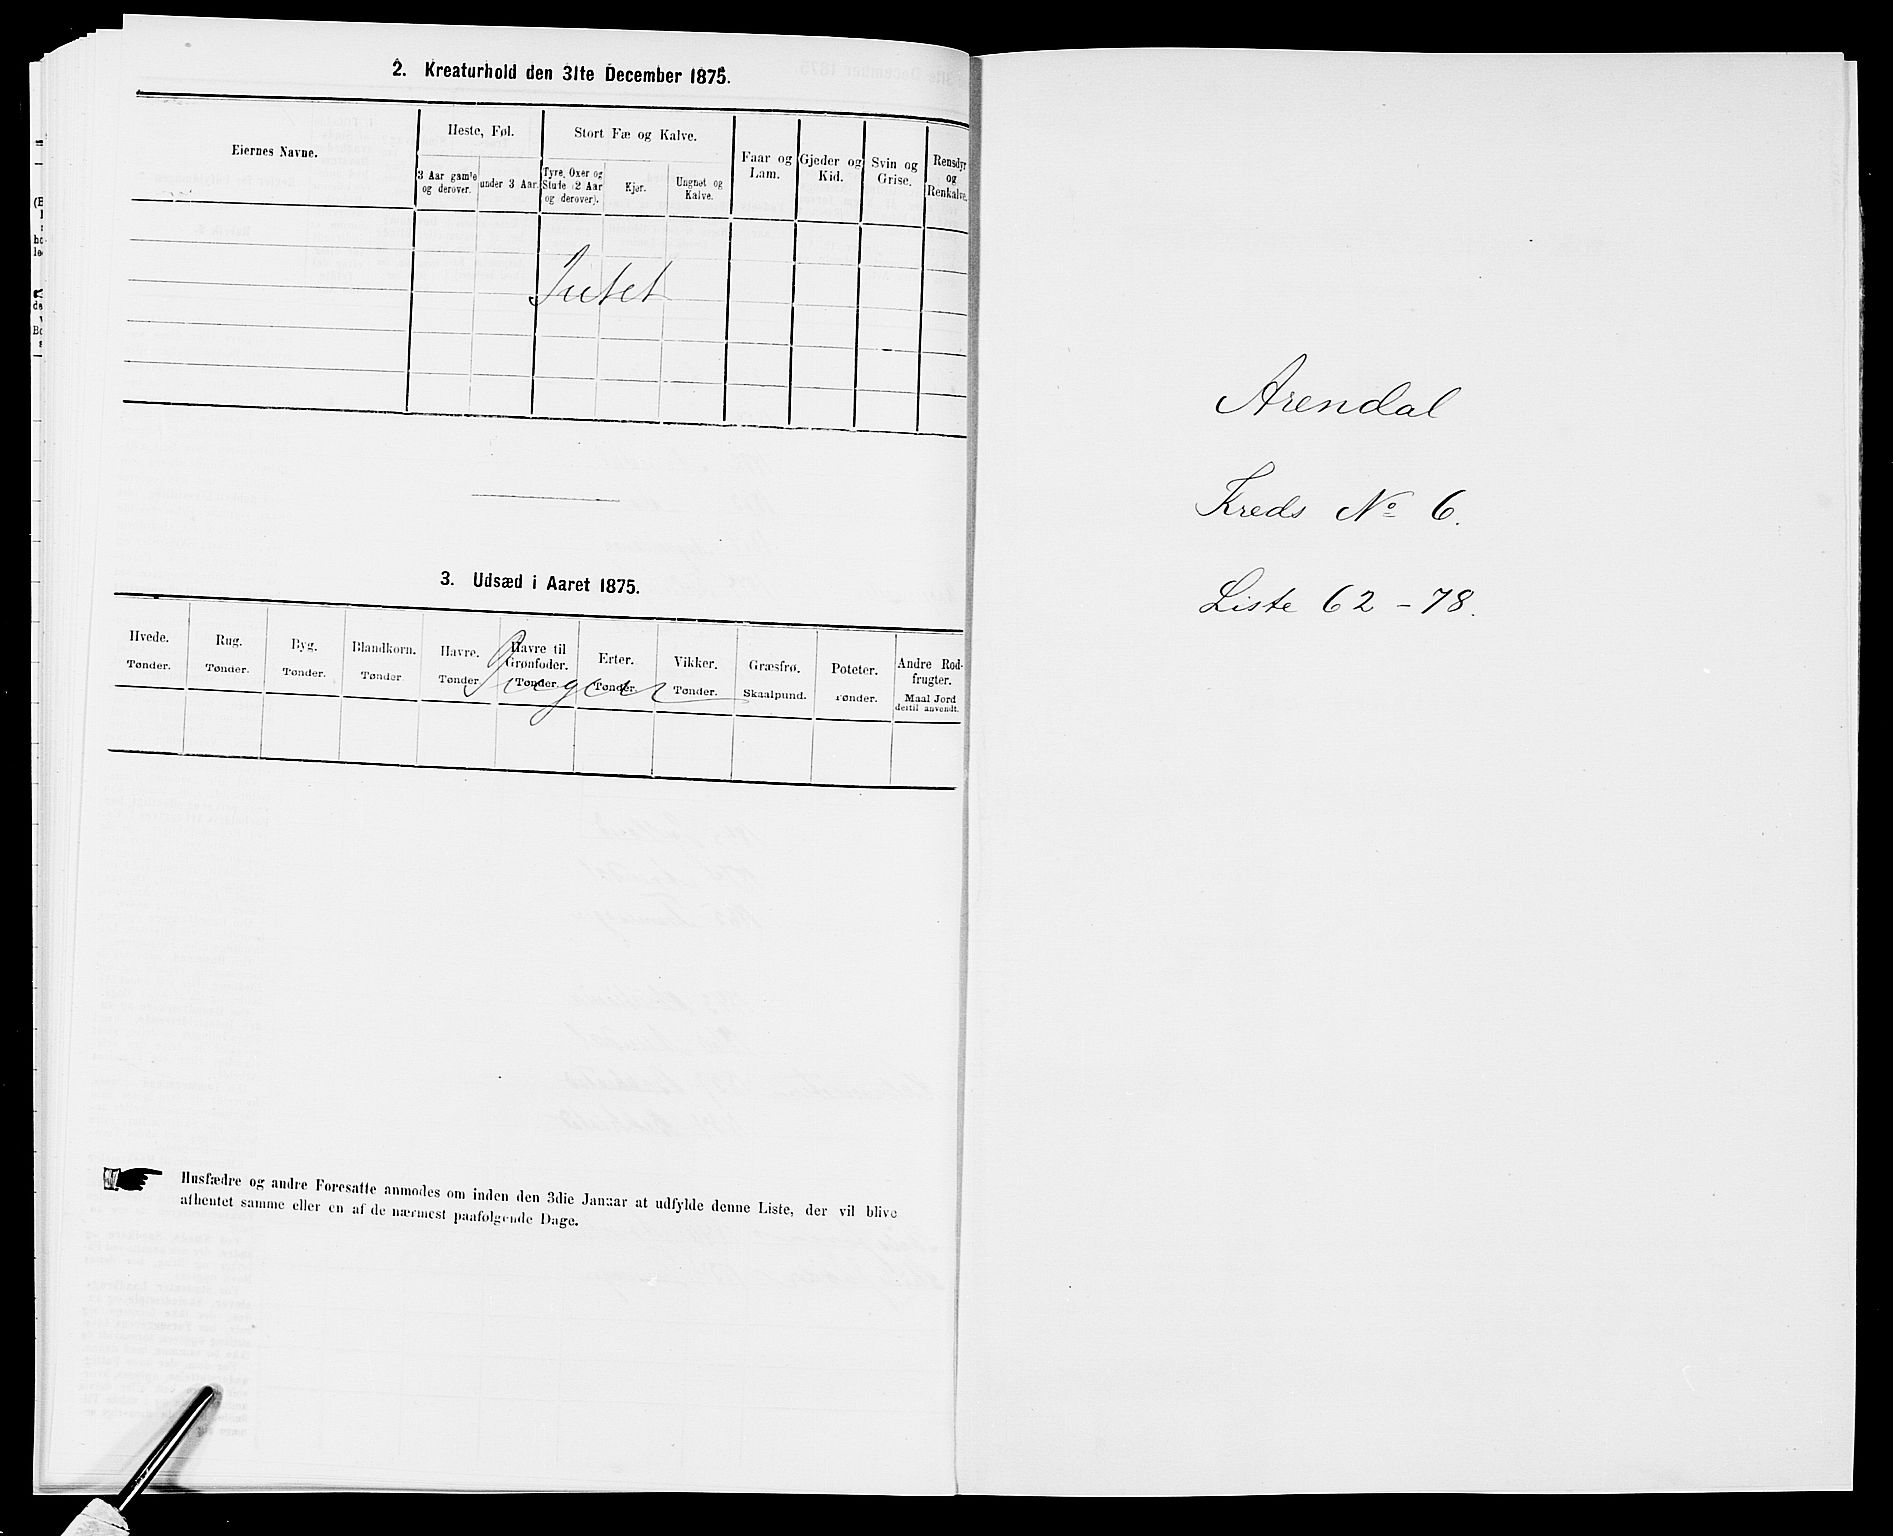 2. Kreaturhold den 31te December 1875.
Eiernes Navne.
Heste, Føl.
Stort Fæ og Kalve.
3 Aar gamle og derover.
under 3 Aar.
Tyre, Oxer og Stude (2 Aar og derover).
Kjør.
Ungnøt og Kalve.
Faar og Lam.
Gjeder og Kid.
Svin og Grise.
Rensdyr og Renkalve.
Intet
3. Udsæd i Aaret 1875.
Hvede.
Tønder.
Rug.
Tønder.
Byg.
Tønder.
Blandkorn.
Tønder
Havre.
Tønder
Havre til Grønfoder.
Tønder.
Erter.
Tønder.
Vikker.
Tønder.
Græsfrø.
Skaalpund.
Poteter.
Tønder.
Andre Rodfrugter.
Maal Jord dertil anvendt.
Ingen
Husfædre og andre Foresatte anmodes om inden den 3die Januar at udfylde denne Liste, der vil blive
afhentet samme eller en af de nærmest paafølgende Dage.
Arendal
Kreds No 6.
Liste 62 - 78.